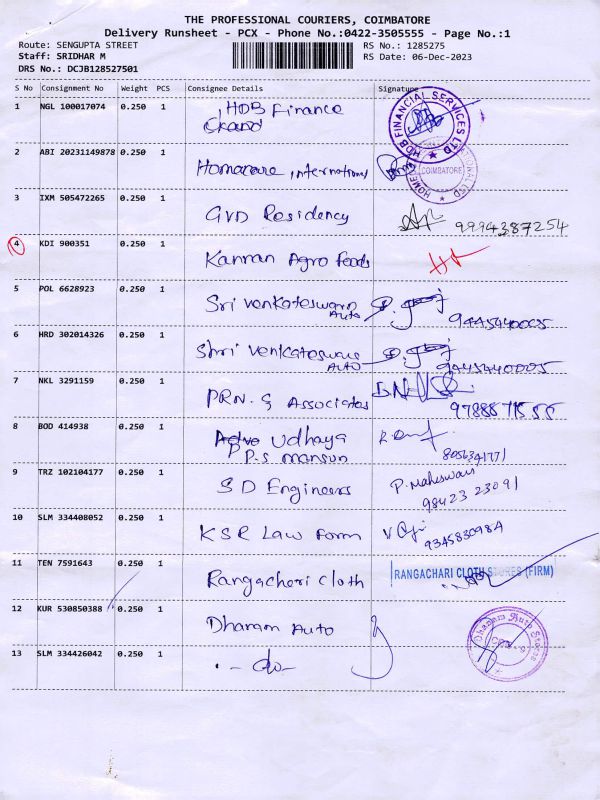 THE PROFESSIONAL COURIERS, COIMBATORE
Delivery Runsheet - PCX - Phone No.:0422-3505555 - Page No.:1
Route: SENGUPTA STREET
RS No.: 1285275
Staff: SRIDHAR M
RS Date: 06-Dec-2023
DRS No.: DCJB128527501
S No Consignment No Weight PCS Consignee Details Signature
1 NGL 100017074 0.250 1 HDB Finance
HDB FINANCIAL SERVICES LTD
2 ABI 20231149878 0.250 1 Homacare, international
COIMBATORE
3 IXM 505472265 0.250 1 GVD Residency 9994387254
4 KDI 900351 0.250 1 Kannan Agro foods
5 POL 6628923 0.250 1 Sri Venkateswara
Auto 9445940005
6 HRD 302014326 0.250 1 Shri Venkateswara
AUTO 9445440005
7 NKL 3291159 0.250 1 PRN. G Associates 9788871555
8 BOD 414938 0.250 1 Udhaya
P.S mansun
9 TRZ 102104177 0.250 1 S D Engineers P. Maheswari
98423 23091
10 SLM 334408052 0.250 1 KSR Law Form
9345830984
11 TEN 7591643 0.250 1 Rangachari Cloth RANGACHARI CLOTH STORES (FIRM)
12 KUR 530850388 0.250 1 Dharam Auto
Dharam Auto Stores
13 SLM 334426042 0.250 1 - do -